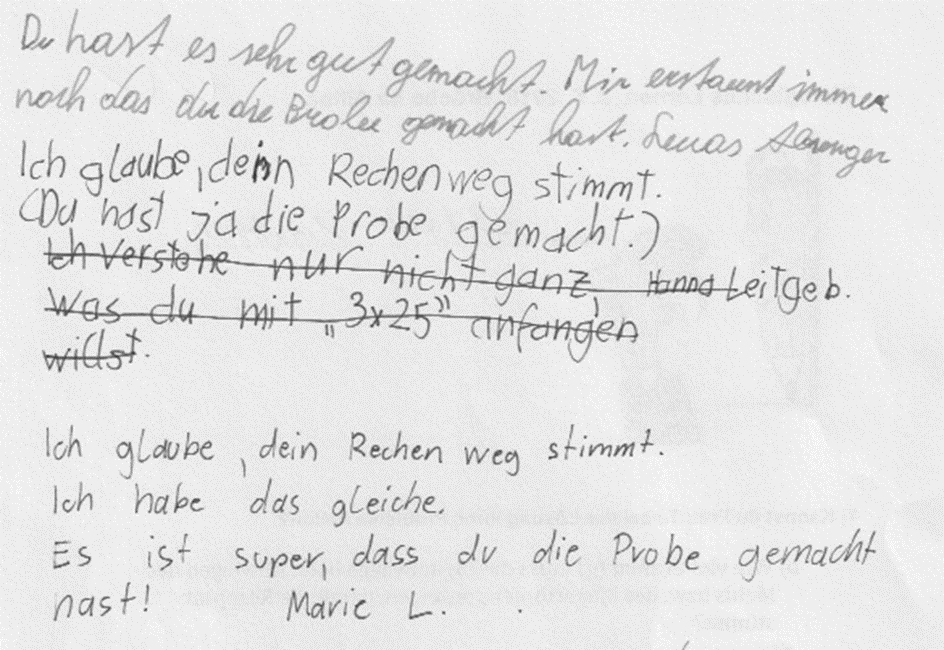 Du hast es sehr gut gemacht. Mir erstaunt immer
noch das du die Brobe gemacht hast. Lucas
Ich glaube, dein Rechenweg stimmt.
(Du hast ja die Probe gemacht.)
Ich verstehe nur nicht ganz, Hanna Leitgeb.
was du mit „3x25" anfangen
willst.
Ich glaube, dein Rechen weg stimmt.
Ich habe das gleiche.
Es ist super, dass du die Probe gemacht
hast! Marie L.